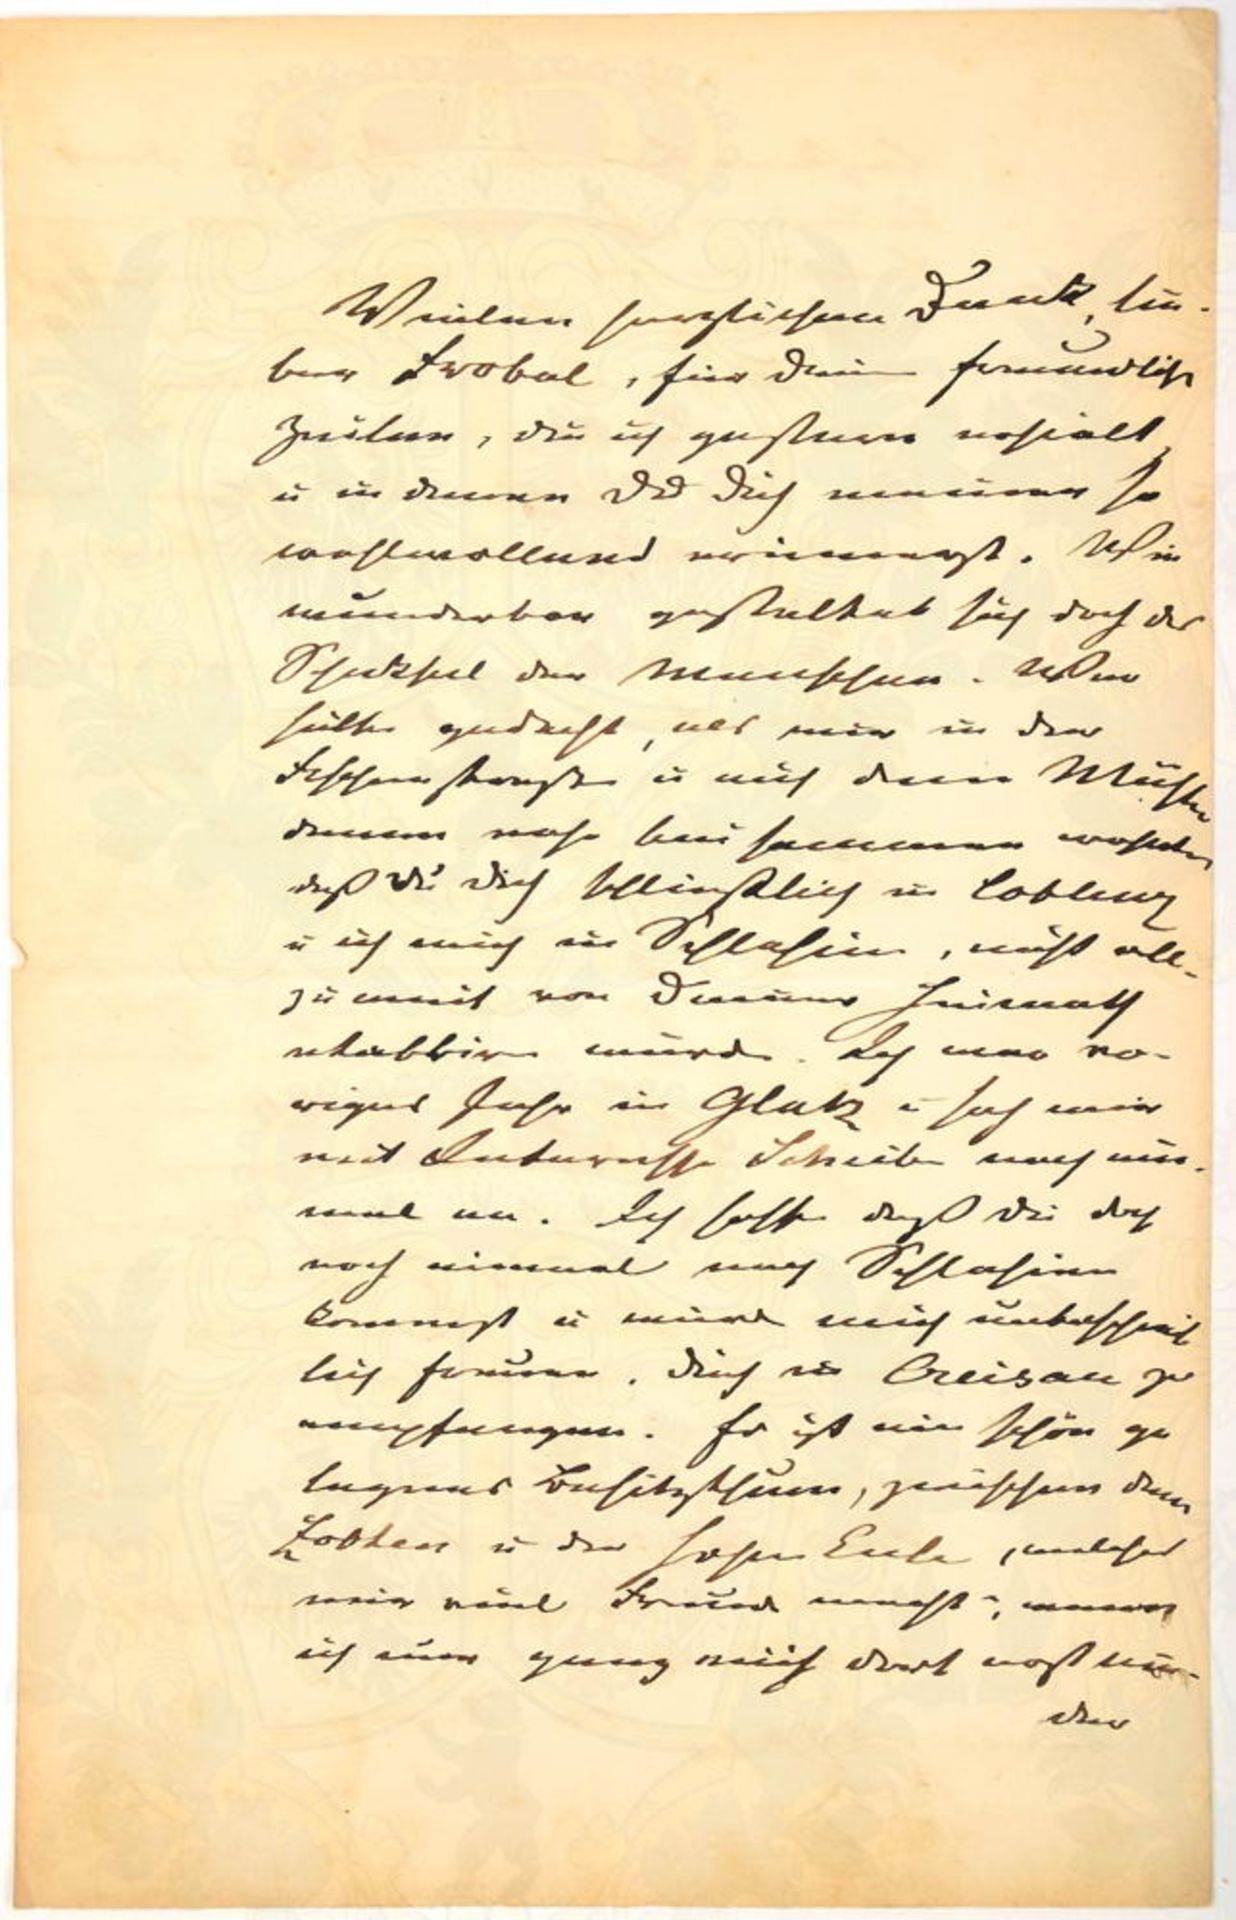 Vielen herzlichen Dank, lie-
ber Trobal, für Deine freundliche
Zeilen, die ich gestern erhielt
u in denen Du Dich meiner so
wohlwollend erinnerst. Wie
wunderbar gestaltet sich doch das
Schicksal der Menschen. Wer
hätte gedacht, als wir in der
u auf dem Mühlen
damm nahe beisammen wohnten
daß Du Dich schließlich in Coblenz
u ich mich in Schlesien, nicht all-
zuweit von Deiner Heimath
etabliren würde. Ich war vo-
riges Jahr in Glatz u sah mir
mit Interesse Scheibe noch ein-
mal an. Ich hoffe daß Du doch
noch einmal nach Schlesien
kommst u würde mich unbeschreib
lich freuen, Dich in Creisau zu
empfangen. Es ist ein schön ge
legenes Besitzthum, zwischen dem
Zobten u der hohen Eule, welches
mir viel Freude macht, wenn
ich nur ganz mich dort erst wür-
der